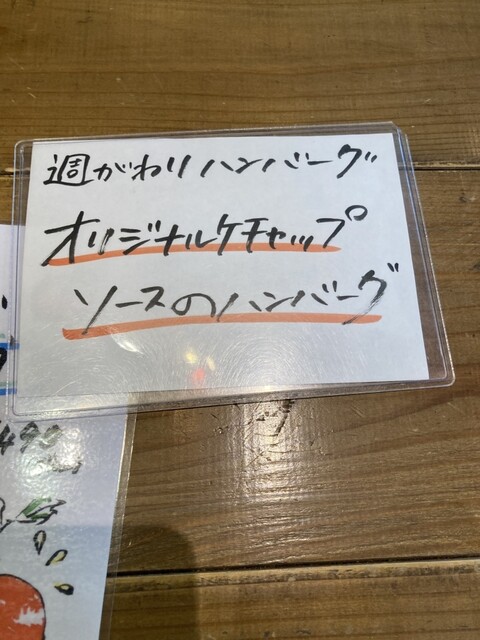 週がわりハンバーグ
オリジナルケチャップ
ソースのハンバーグ